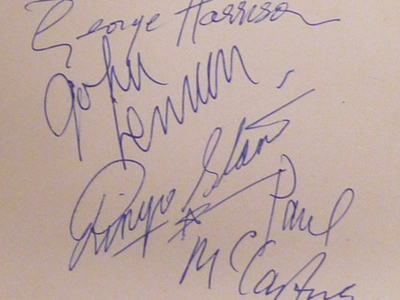 George Harrison
John
Lennon
Ringo Starr
Paul
McCartney